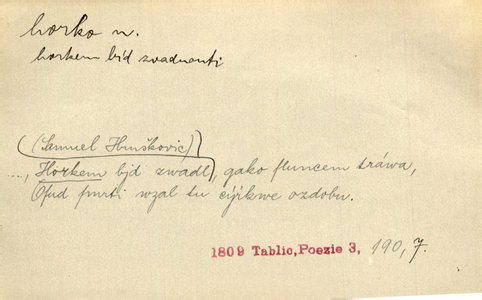 horko n.
horkem býd zvadnouti
(Samuel Hruškovic)
..., Horkem býd zwadl, gako ſluncem tráwa,
Oſud ſmrti wzal tu cýrkwe ozdobu.
1809 Tablic, Poezie 3, 190, 7.